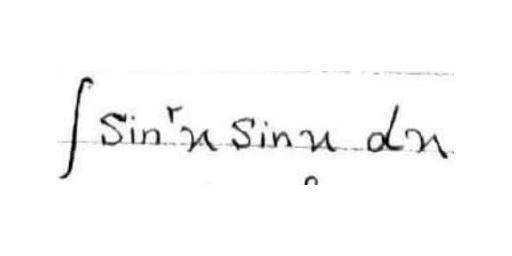 ∫ sin²x sinx dx